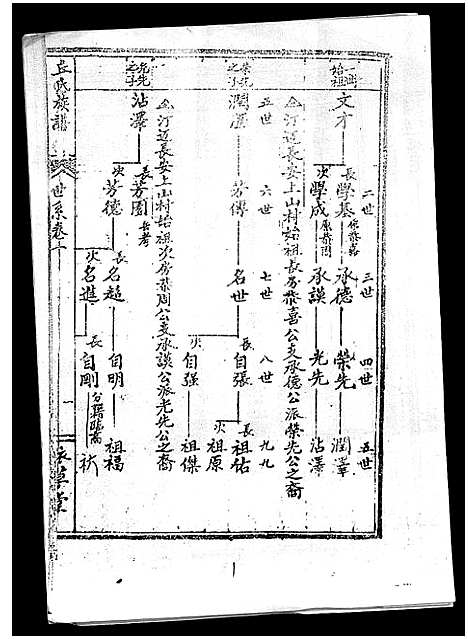 一世
始祖
文才
長 學基
次 學成
二世
承德
承謨
三世
榮先
光先
四世
潤澤
沾澤
五世
金汀迳長安上山村始祖長房恭喜公支承德公派榮先公之裔
榮先
之子
潤澤
五世
芳傳
六世
名世
七世
長 自張
次 自强
八世
長 祖佑
次 祖原
祖傑
九世
金汀迳長安上山村始祖次房恭周公支承謨公派光先公之裔
光先
之子
沾澤
長 芳園
次 芳德
長 名超
次 名進
自明
長 自剛
祖福
丘氏族譜
世系卷
一